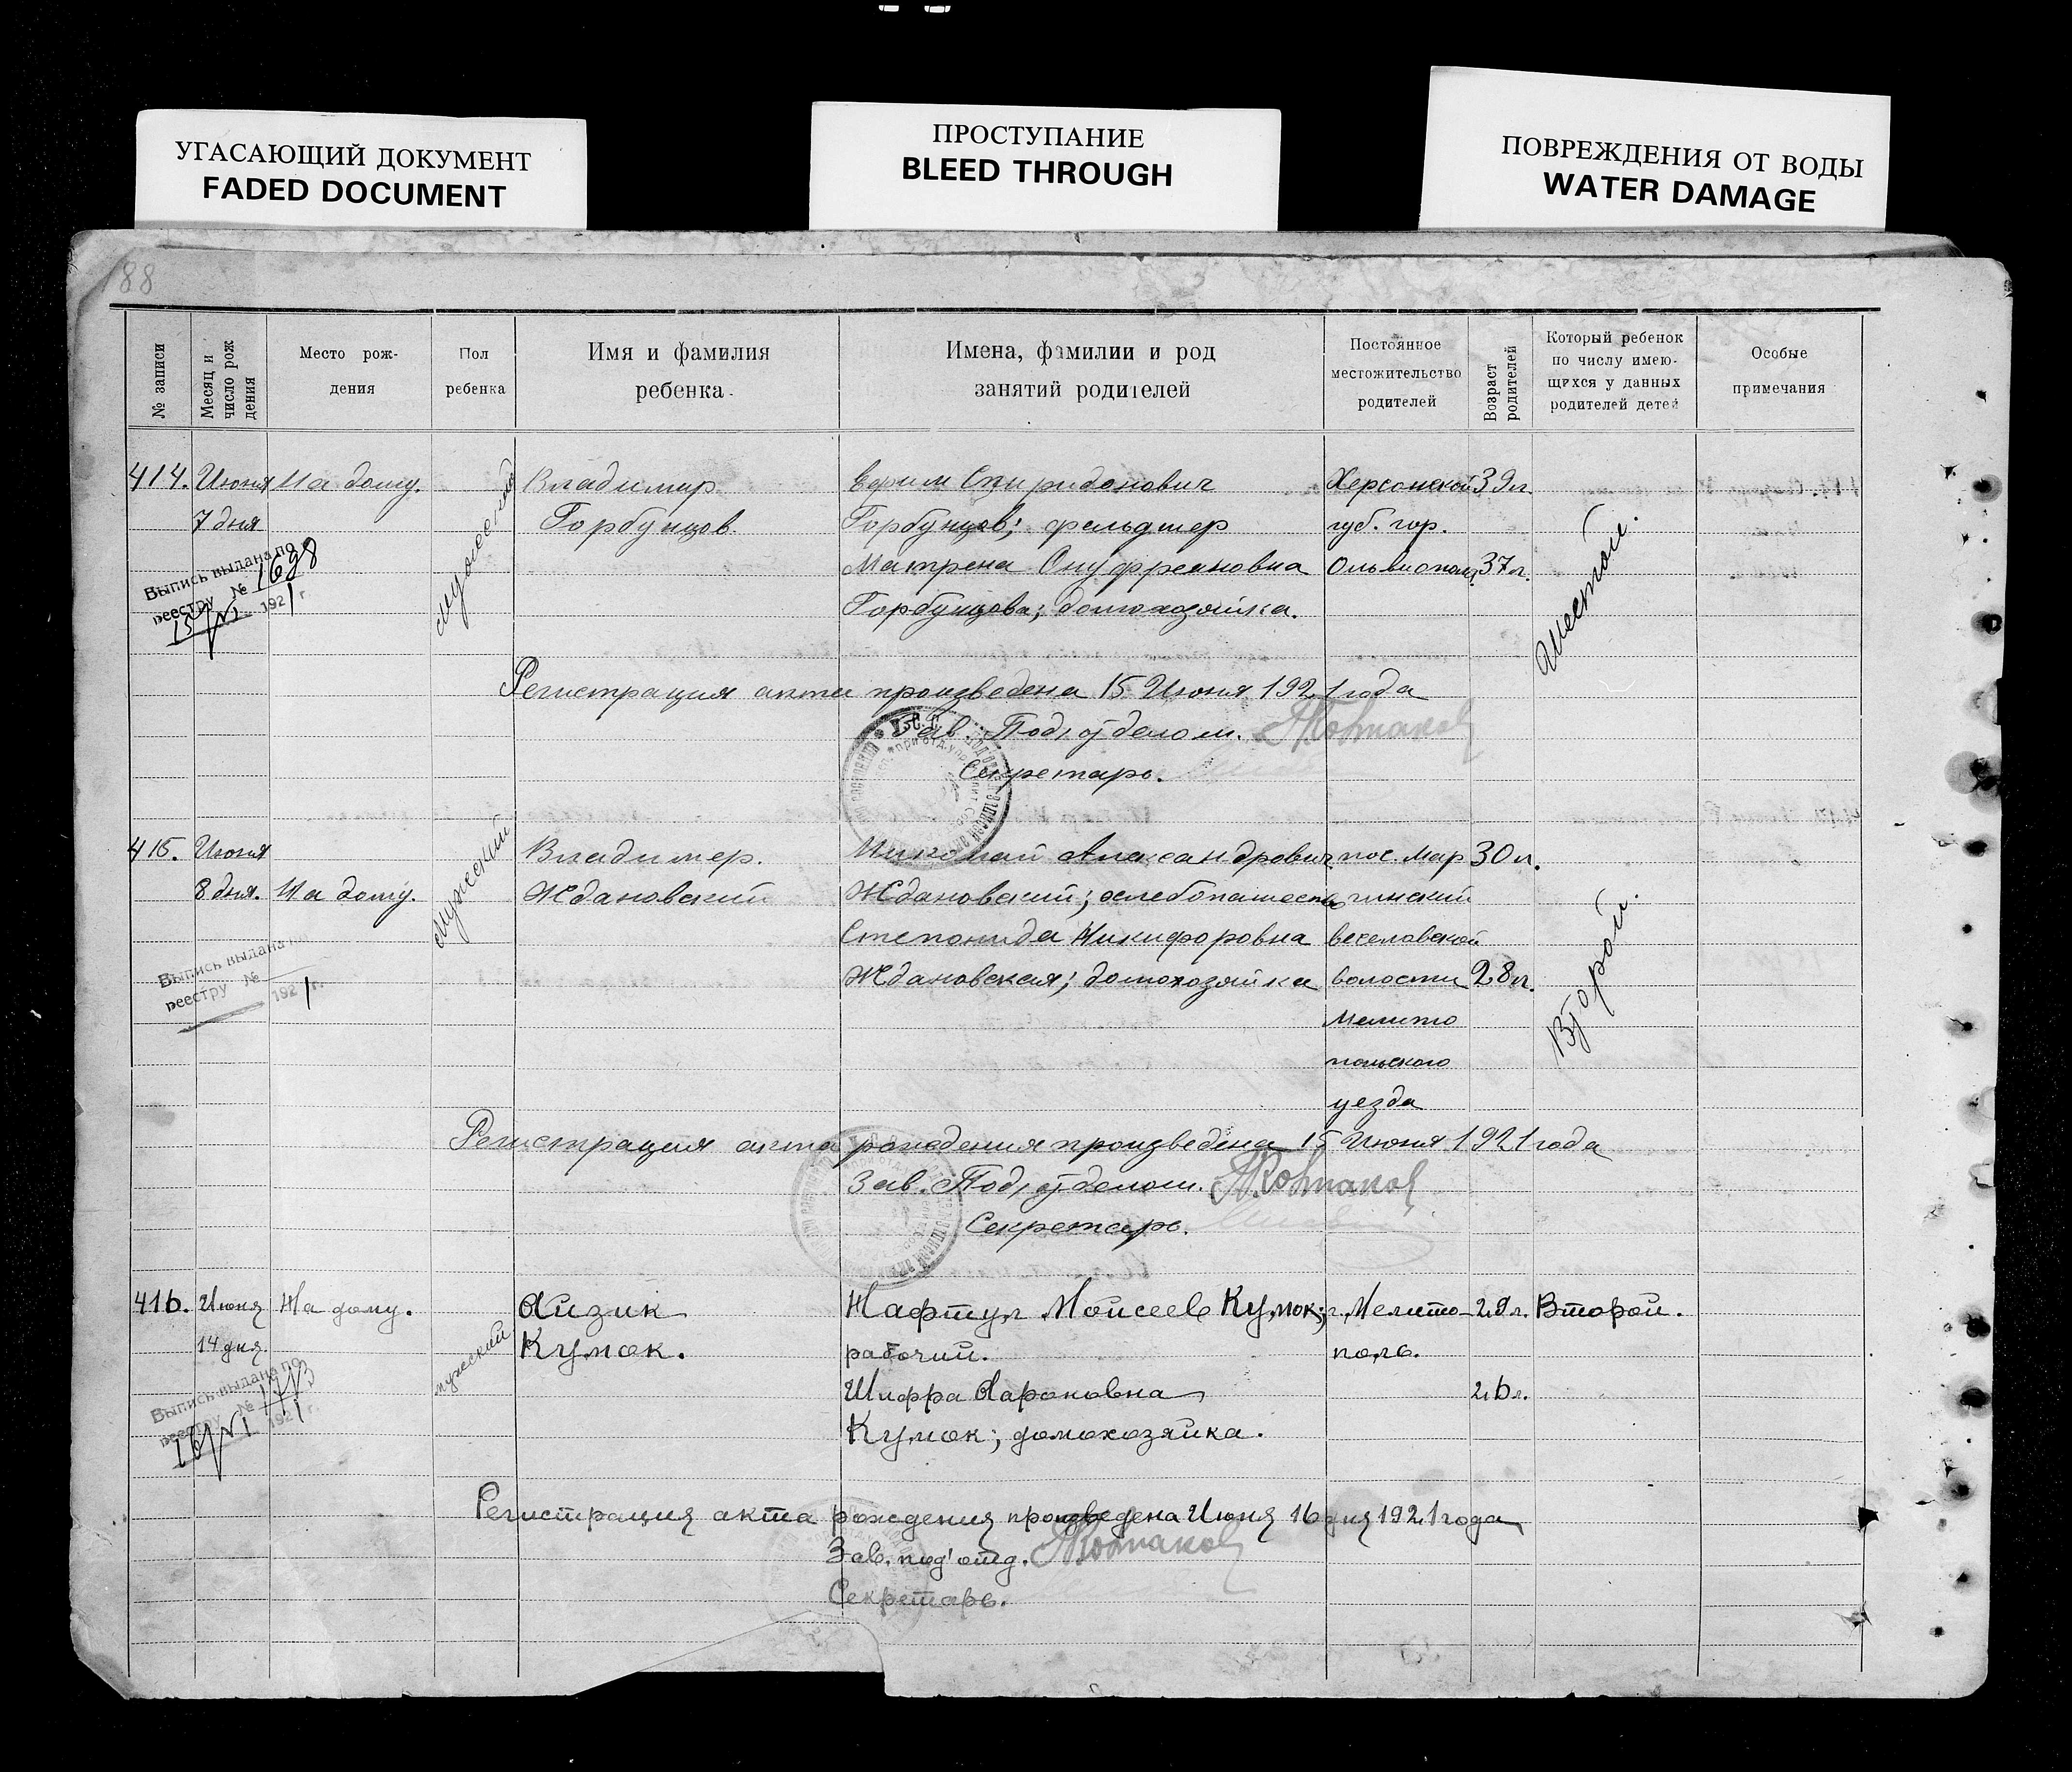 УГАСАЮЩИЙ ДОКУМЕНТ
FADED DOCUMENT
ПРОСТУПАНИЕ
BLEED THROUGH
ПОВРЕЖДЕНИЯ ОТ ВОДЫ
WATER DAMAGE
188
№ записи
Месяц и число рож дения
Место рож-
дения
Пол
ребенка
Имя и фамилия
ребенка
Имена, фамилии и род
занятий родителей
Постоянное
местожительство
родителей
Возраст родителей
Который ребенок
по числу имею-
щихся у данных
родителей детей
Особые
примечания
414. Июня На дому. мужеский Владимир Ефим Спиридонович Херсонской 39 л. Шестой.
7 дня Горбунцов. Горбунцов; фельдшер губ. гор.
Матрена Онуфреяновна Ольвиополь 37 л.
Горбунцова; домохозяйка.
Выпись выдана по
реестру № 1698
15/VI 1921 г.
Регистрация акта произведена 15 Июня 1921 года
Зав. Под'отделом.
Секретарь.
415. Июня мужеский Владимер. Николай Александрович пос. Мар 30 л. Второй.
8 дня. На дому. Ждановский Ждановский; хлебопашество гинский
Степонида Никифоровна веселовской
Ждановская; домохозяйка волости 28 л.
Мелито
польского
уезда
Выпись выдана по
реестру №
1921 г.
Регистрация акта рождения произведена 15 Июня 1921 года
Зав. Под'отделом.
Секретарь.
416. Июня На дому. мужеский Айзик Нафтул Мойсеев Кумок; г. Мелито- 29 л. Второй.
14 дня. Кумок. рабочий. поль.
Шифра Аароновна 26 л.
Кумок; домохозяйка.
Выпись выдана по
реестру № 1713
16/VI 1921 г.
Регистрация акта рождения произведена Июня 16 дня 1921 года
Зав. под'отд.
Секретарь.